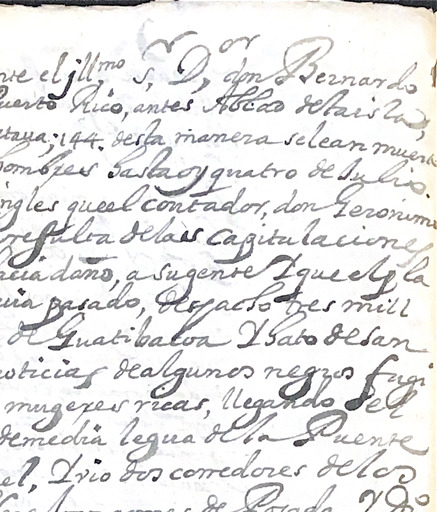 nte el jll.mo s.r D.or don Bernardo
uerto Rico, antes Abbad de la isla,
144. desta manera se lean muert
hombres hasta oy quatro de Julio.
ingles que el contador, don Geronimo
resulta de las capitulaciones
acia daño, a su gente Y que el
uia pasado, despacho tres mill
de Guatibacoa Y hato de san
noticias de algunos negros fugi
mugeres ricas, llegando el
de media legua de la Puente
el, Y vio dos corredores de los
de Posada